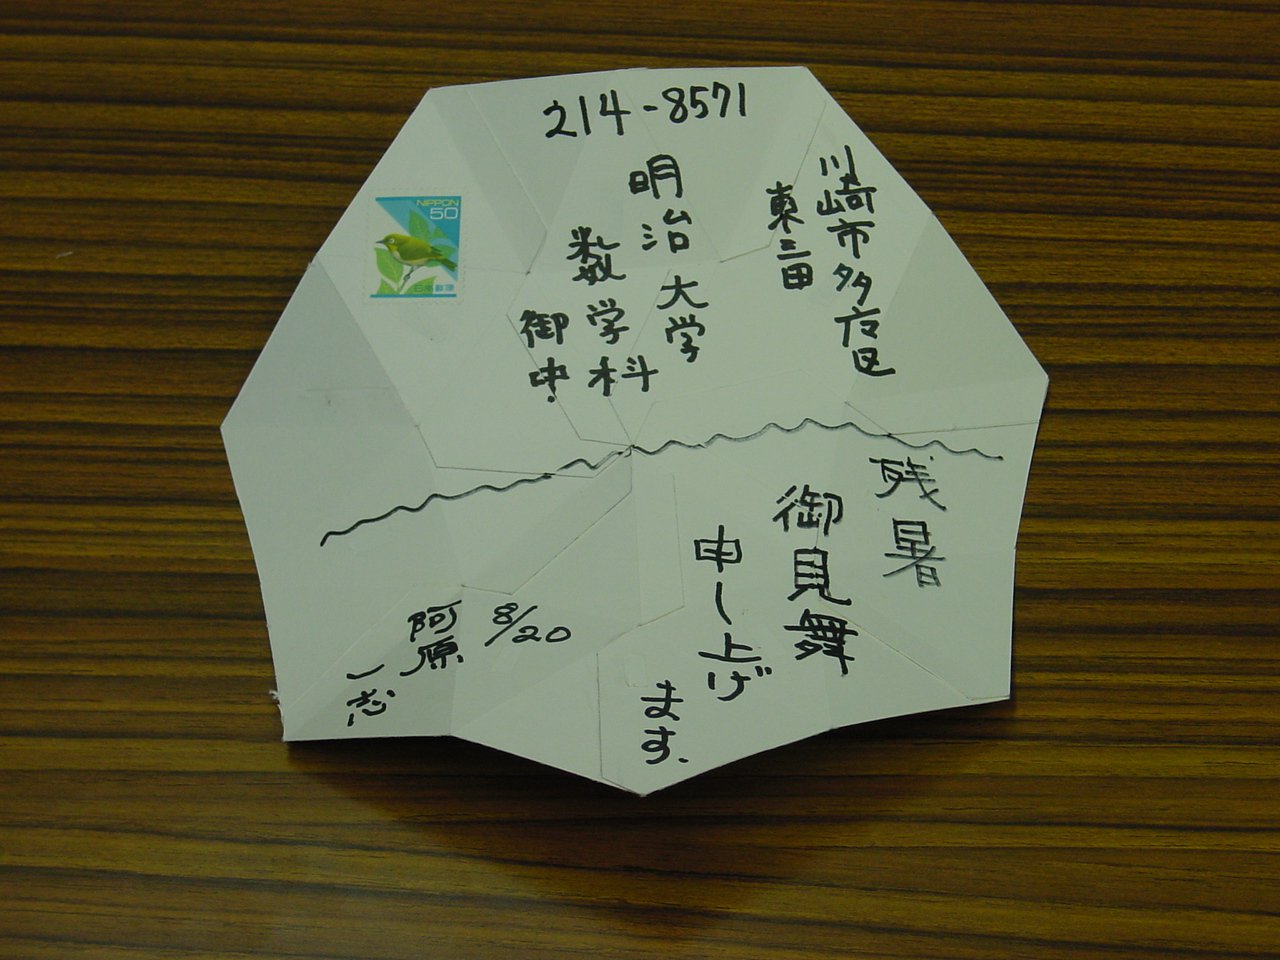 214-8571
川崎市多摩区
東三田
明治大学
数学科
御中
NIPPON
50
日本郵便
残暑
御見舞
申し上げ
ます.
8/20
阿原
一志